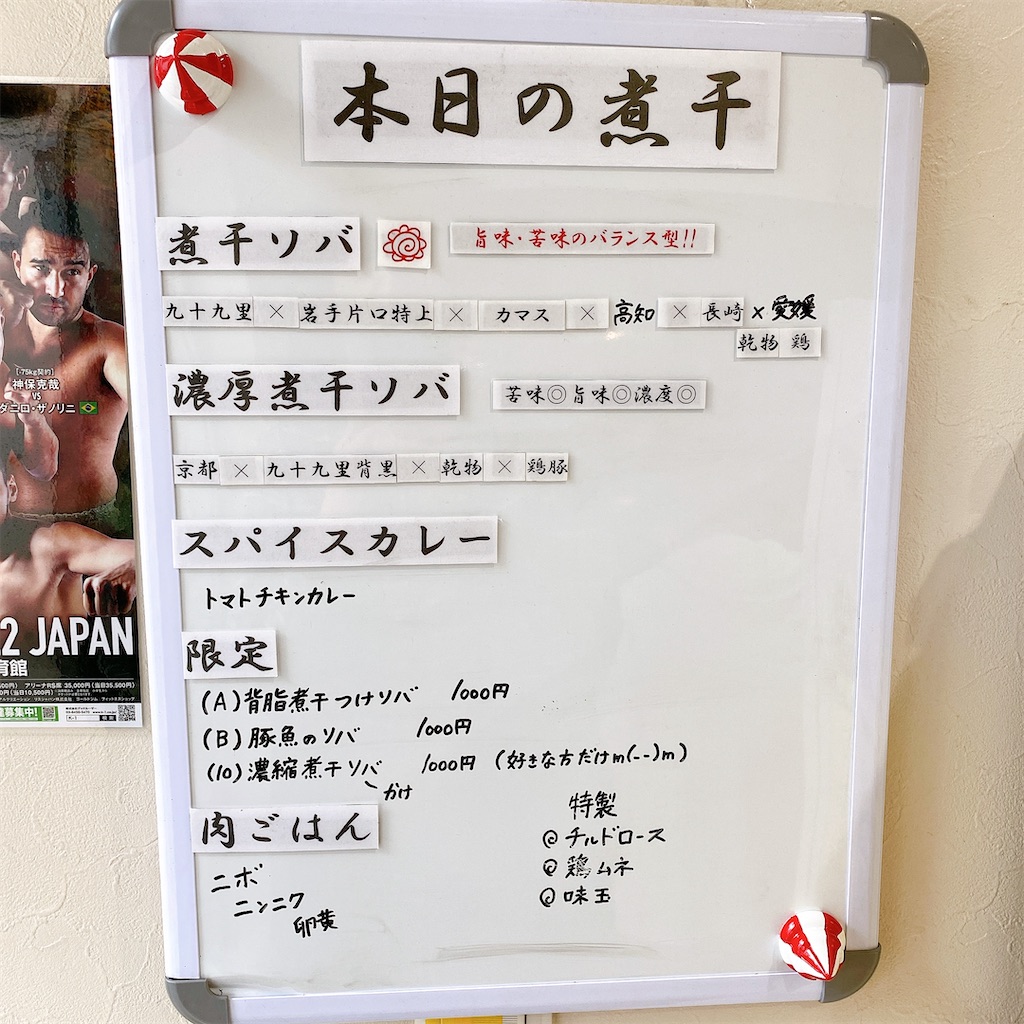 本日の煮干
煮干ソバ 旨味・苦味のバランス型!!
九十九里 × 岩手片口特上 × カマス × 高知 × 長崎 × 愛媛
乾物 鶏
濃厚煮干ソバ 苦味◎旨味◎濃度◎
京都 × 九十九里背黒 × 乾物 × 鶏豚
スパイスカレー
トマトチキンカレー
限定
(A)背脂煮干つけソバ 1000円
(B)豚魚のソバ 1000円
(10)濃縮煮干ソバ 1000円 (好きな方だけm(--)m)
かけ
肉ごはん
ニボ
ニンニク
卵黄
特製
@チルドロース
@鶏ムネ
@味玉
[-75kg契約]
神保克哉
VS
ダニロ・ザノリニ
2 JAPAN
育館
アリーナRS席 35,000円(当日35,500円)
(当日10,500円)
募集中!